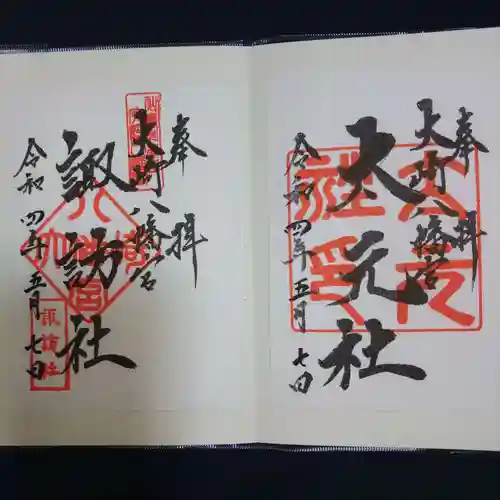 奉拝
大町八幡宮
大元社
令和四年五月七日
奉拝
大町八幡宮
諏訪社
令和四年五月七日
諏訪社